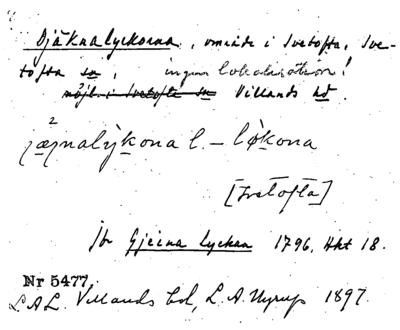 Djäknalyckorna, område i Ivetofta, Ive-
tofta sn, ingen lokalisation!
möjl. i Ivetofta sn Villands hd.
jæ̀jnalỳkona l. – lø̀kona
[Ivetofta]
Jfr Gjeina lyckan 1796, Akt 18.
Nr 5477
L.A.L. Villands bd, L. A. Nyrup 1897